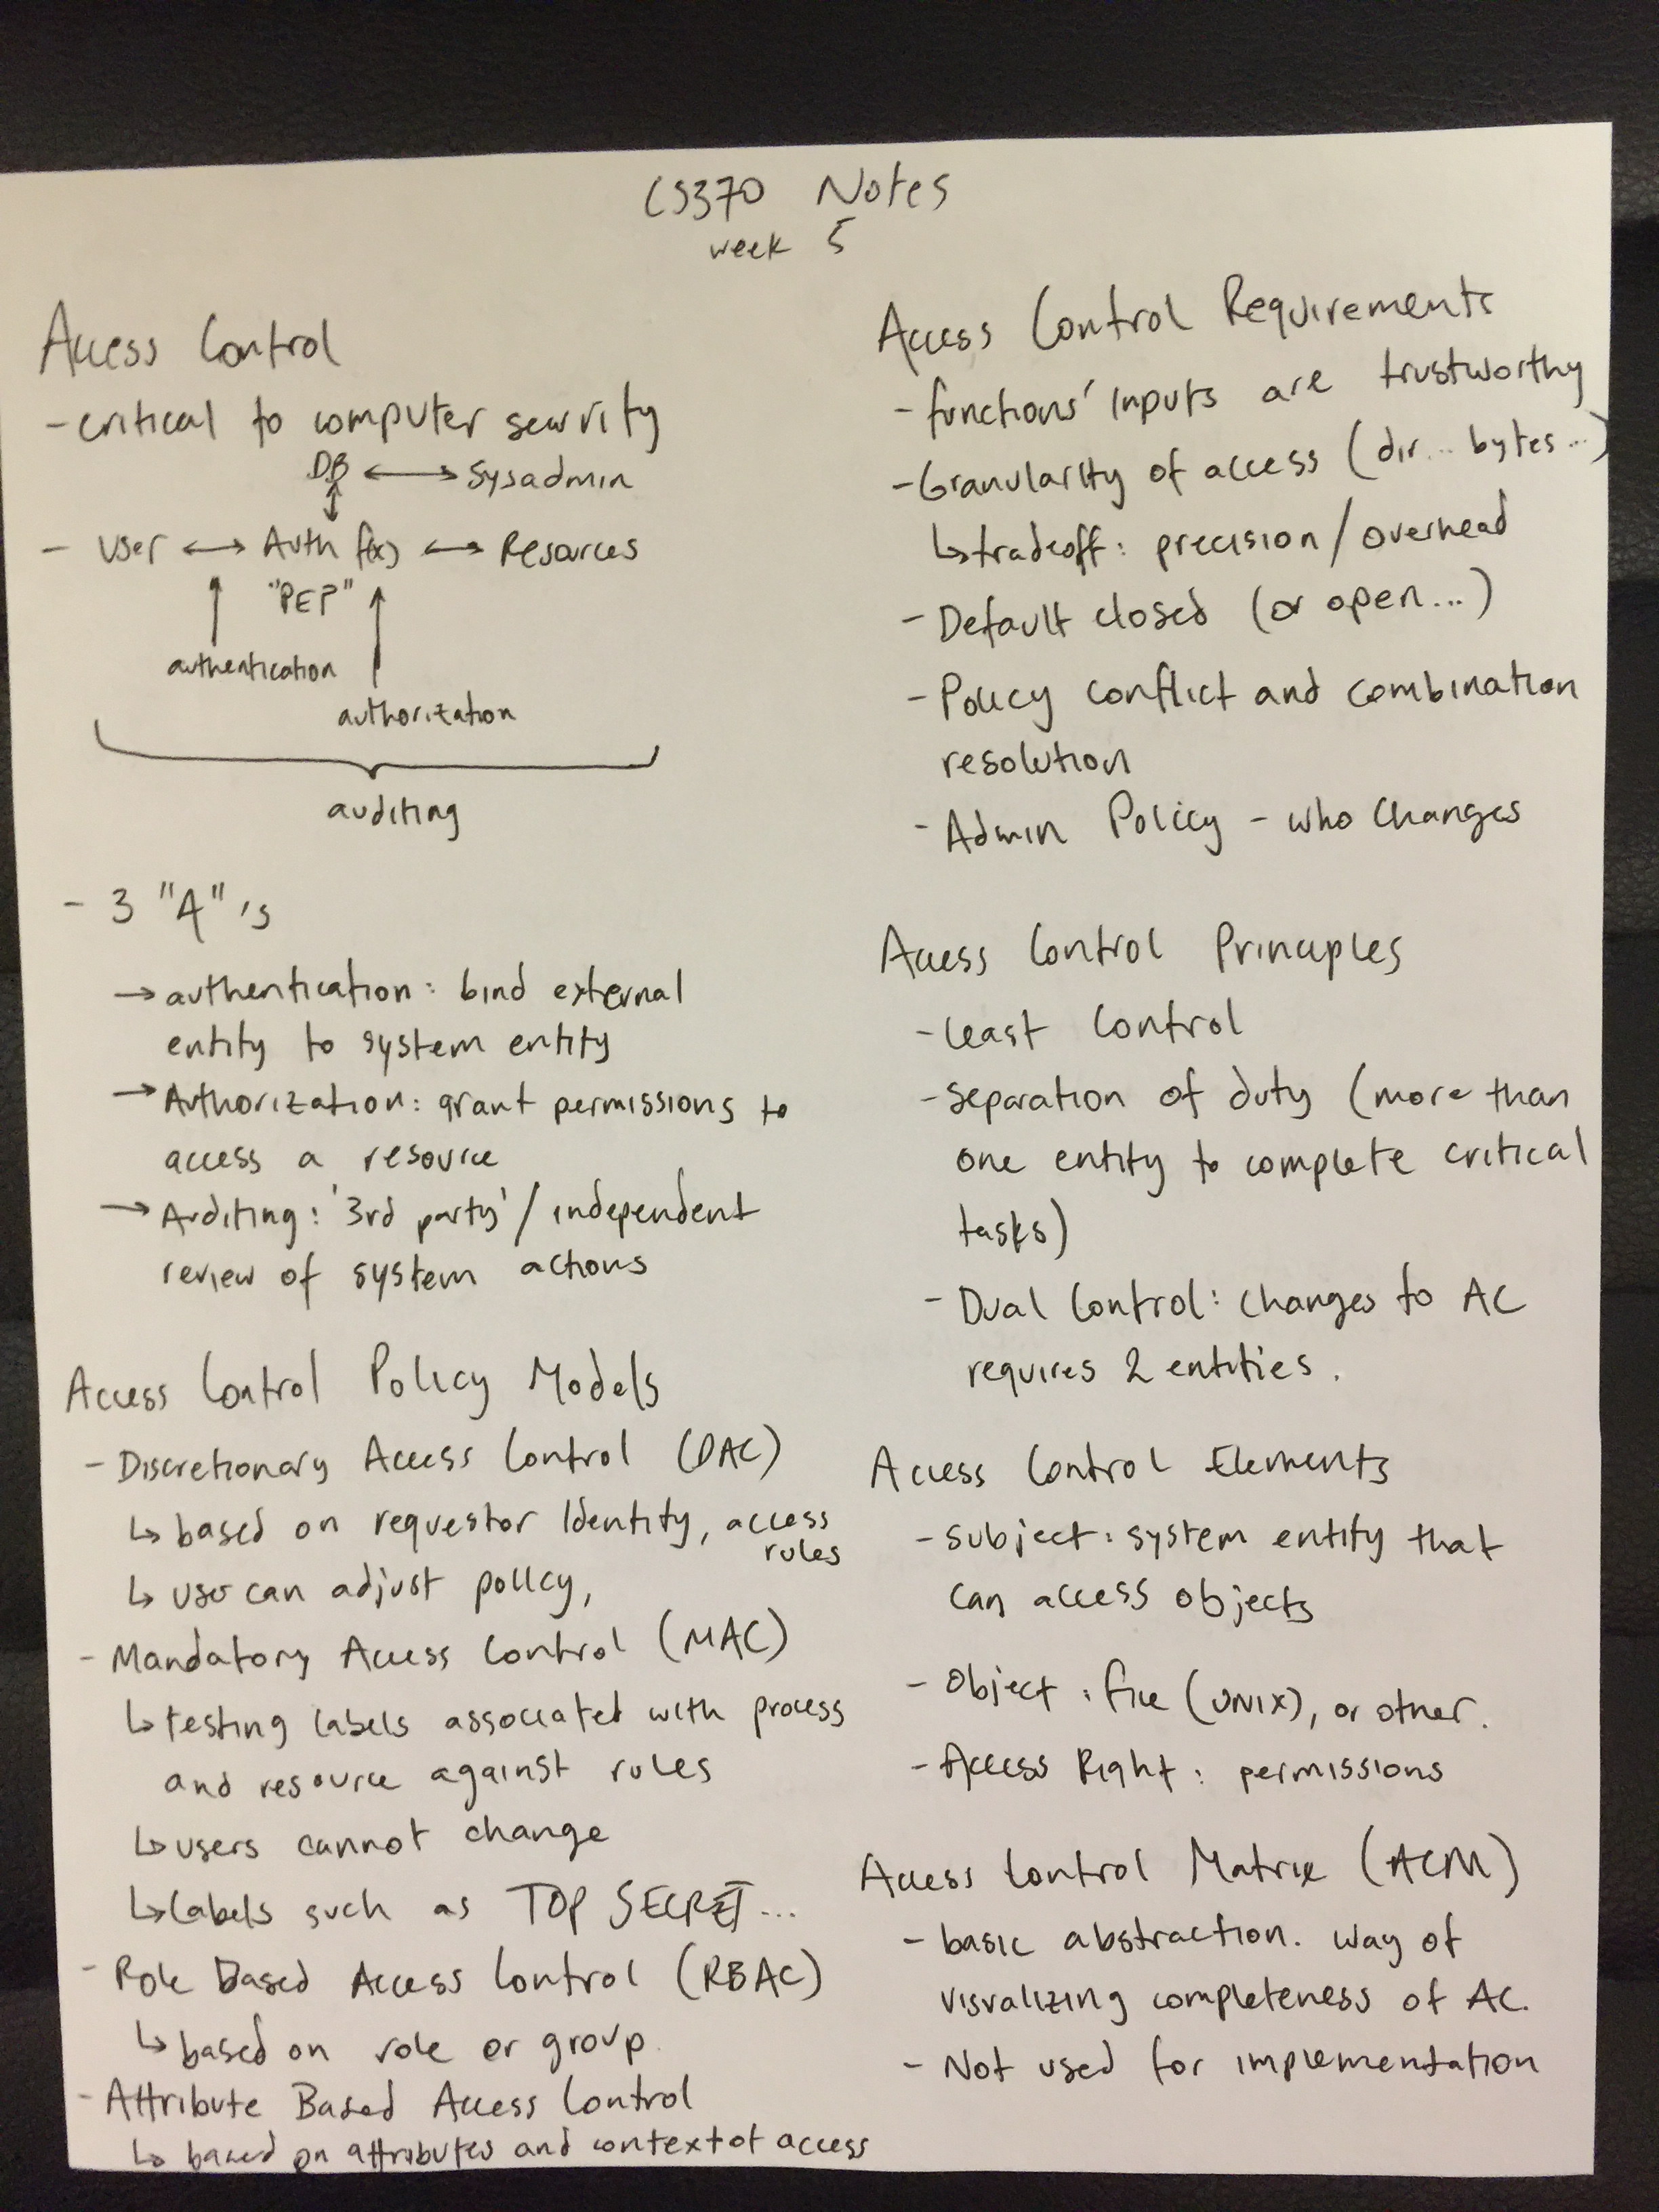 CS370 Notes
week 5
Access Control
- critical to computer security
DB ↔ Sysadmin
↕
- User ↔ Auth f(x) ↔ Resources
"PEP"
authentication
authorization
auditing
- 3 "A"'s
→ authentication: bind external
entity to system entity
→ Authorization: grant permissions to
access a resource
→ Auditing: '3rd party' / independent
review of system actions
Access Control Policy Models
- Discretionary Access Control (DAC)
↳ based on requestor Identity, access
rules
↳ user can adjust policy,
- Mandatory Access Control (MAC)
↳ testing labels associated with process
and resource against rules
↳ users cannot change
↳ Labels such as TOP SECRET...
- Role Based Access Control (RBAC)
↳ based on role or group.
- Attribute Based Access Control
↳ based on attributes and context of access
Access Control Requirements
- functions' inputs are trustworthy
- Granularity of access (dir... bytes...)
↳ tradeoff: precision / overhead
- Default closed (or open...)
- Policy conflict and combination
resolution
- Admin Policy - who changes
Access Control Principles
- Least Control
- separation of duty (more than
one entity to complete critical
tasks)
- Dual Control: changes to AC
requires 2 entities.
Access Control Elements
- Subject: system entity that
can access objects
- Object: file (UNIX), or other.
- Access Right: permissions
Access Control Matrix (ACM)
- basic abstraction. way of
visualizing completeness of AC.
- Not used for implementation